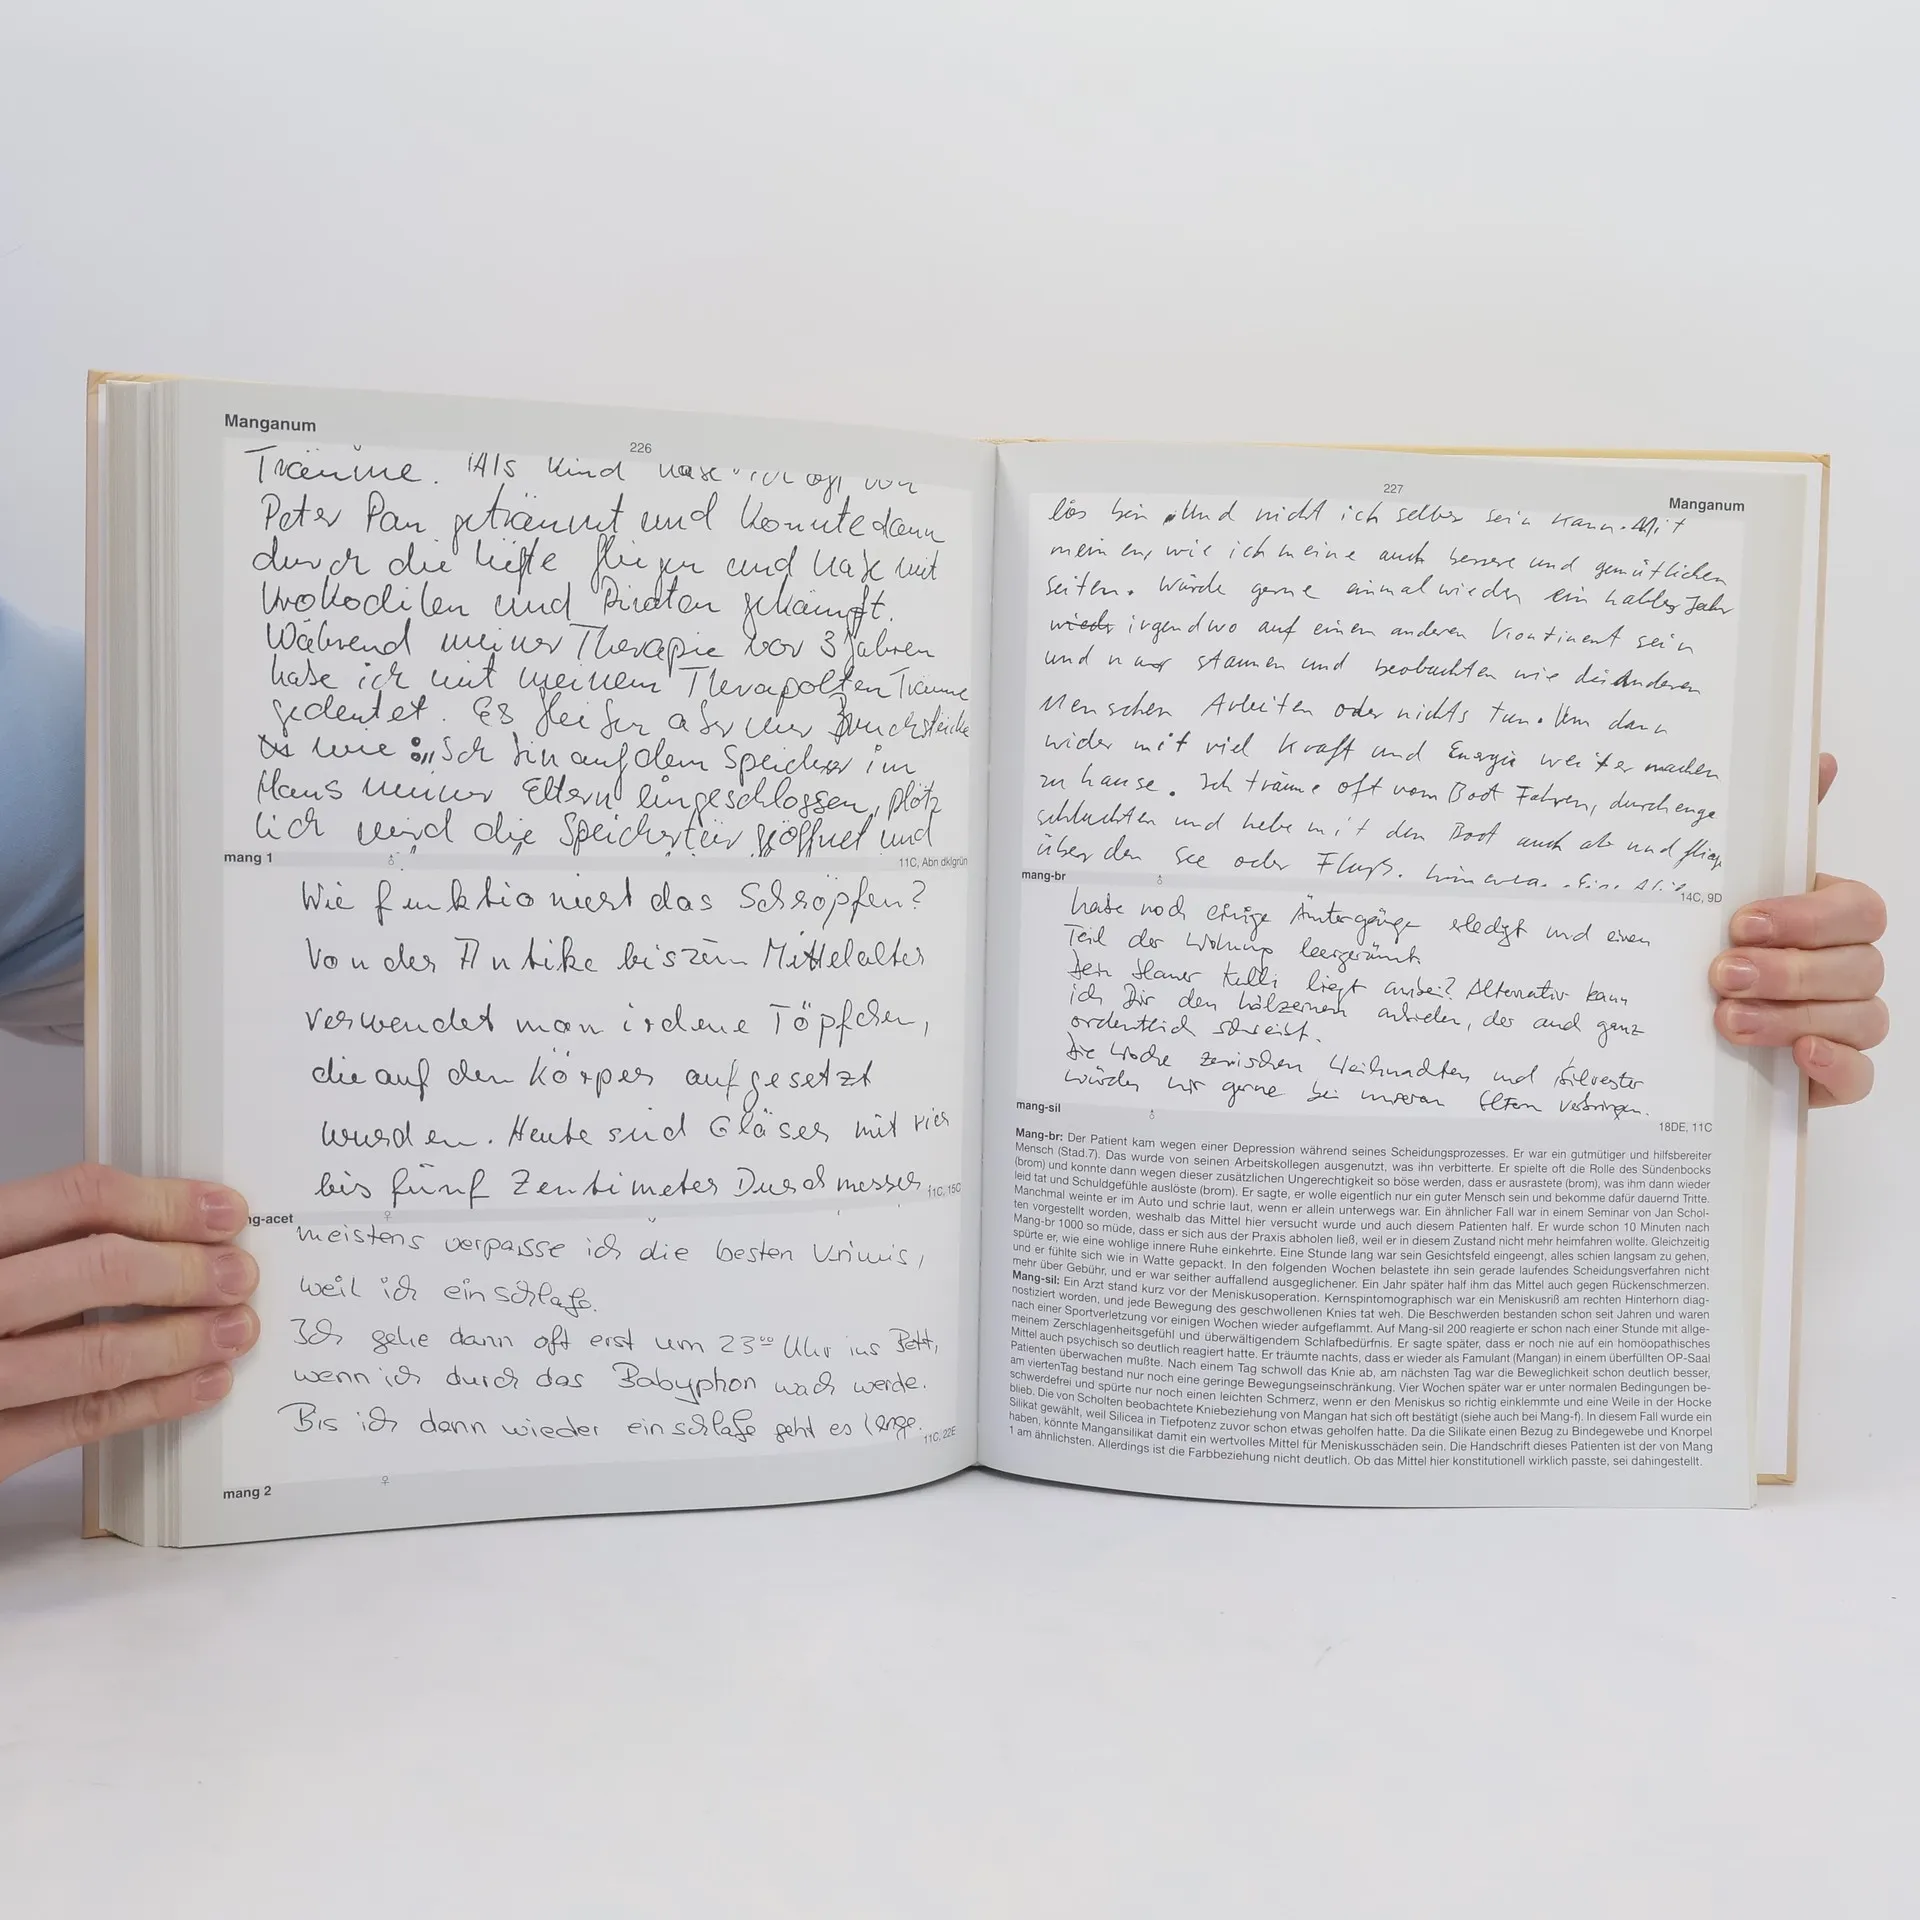 Manganum
226
Träume. Als Kind habe ich oft von
Peter Pan geträumt und konnte dann
durch die Lüfte fliegen und habe mit
Krokodilen und Piraten gekämpft.
Während meiner Therapie vor 3 Jahren
habe ich mit meinem Therapolten Träume
gedeutet. Es bleiben aber nur Bruchstücke
wie: „Ich bin auf dem Speicher im
Haus meiner Eltern eingeschlossen, plötz
lich wird die Speichertür geöffnet und
mang 1 ♂ 11C, Abn dklgrün
Wie funktioniert das Schröpfen?
Von der Antike bis zum Mittelalter
verwendet man irdene Töpfchen,
die auf den Körper aufgesetzt
wurden. Heute sind Gläser mit vier
bis fünf Zentimeter Durchmesser
11C, 15C
ng-acet ♀
meistens verpasse ich die besten Krimis,
weil ich einschlafe.
Ich gehe dann oft erst um 23⁰⁰ Uhr ins Bett,
wenn ich durch das Babyphon wach werde.
Bis ich dann wieder einschlafe geht es lange.
11C, 22E
mang 2 ♀
227
Manganum
los bin. Und nicht ich selber sein kann. Mit
meinen, wie ich meine auch bessere und gemütlichen
seiten. Würde gerne einmal wieder ein halbes Jahr
wieder irgendwo auf einem anderen Kontinent sein
und nur staunen und beobachten wie die Anderen
Menschen Arbeiten oder nichts tun. Um dann
wider mit viel Kraft und Energie weiter machen
zu hause. Ich träume oft vom Boot Fahren, durch enge
schluchten und hebe mit den Boot auch ab und fliege
über den See oder Fluß.
mang-br ♂ 14C, 9D
habe noch einige Ämtergänge erledigt und einen
Teil der Wohnung leergeräumt.
Dein blauer Kulli liegt anbei? Alternativ kann
ich Dir den hölzernen anbieten, der auch ganz
ordentlich schreibt.
Die Woche zwischen Weihnachten und Silvester
würden wir gerne bei unseren Eltern verbringen.
mang-sil ♂ 18DE, 11C
Mang-br: Der Patient kam wegen einer Depression während seines Scheidungsprozesses. Er war ein gutmütiger und hilfsbereiter
Mensch (Stad.7). Das wurde von seinen Arbeitskollegen ausgenutzt, was ihn verbitterte. Er spielte oft die Rolle des Sündenbocks
(brom) und konnte dann wegen dieser zusätzlichen Ungerechtigkeit so böse werden, dass er ausrastete (brom), was ihm dann wieder
leid tat und Schuldgefühle auslöste (brom). Er sagte, er wolle eigentlich nur ein guter Mensch sein und bekomme dafür dauernd Tritte.
Manchmal weinte er im Auto und schrie laut, wenn er allein unterwegs war. Ein ähnlicher Fall war in einem Seminar von Jan Schol-
ten vorgestellt worden, weshalb das Mittel hier versucht wurde und auch diesem Patienten half. Er wurde schon 10 Minuten nach
Mang-br 1000 so müde, dass er sich aus der Praxis abholen ließ, weil er in diesem Zustand nicht mehr heimfahren wollte. Gleichzeitig
spürte er, wie eine wohlige innere Ruhe einkehrte. Eine Stunde lang war sein Gesichtsfeld eingeengt, alles schien langsam zu gehen,
und er fühlte sich wie in Watte gepackt. In den folgenden Wochen belastete ihn sein gerade laufendes Scheidungsverfahren nicht
mehr über Gebühr, und er war seither auffallend ausgeglichener. Ein Jahr später half ihm das Mittel auch gegen Rückenschmerzen.
Mang-sil: Ein Arzt stand kurz vor der Meniskusoperation. Kernspintomographisch war ein Meniskusriß am rechten Hinterhorn diag-
nostiziert worden, und jede Bewegung des geschwollenen Knies tat weh. Die Beschwerden bestanden schon seit Jahren und waren
nach einer Sportverletzung vor einigen Wochen wieder aufgeflammt. Auf Mang-sil 200 reagierte er schon nach einer Stunde mit allge-
meinem Zerschlagenheitsgefühl und überwältigendem Schlafbedürfnis. Er sagte später, dass er noch nie auf ein homöopathisches
Mittel auch psychisch so deutlich reagiert hatte. Er träumte nachts, dass er wieder als Famulant (Mangan) in einem überfüllten OP-Saal
Patienten überwachen mußte. Nach einem Tag schwoll das Knie ab, am nächsten Tag war die Beweglichkeit schon deutlich besser,
am viertenTag bestand nur noch eine geringe Bewegungseinschränkung. Vier Wochen später war er unter normalen Bedingungen be-
schwerdefrei und spürte nur noch einen leichten Schmerz, wenn er den Meniskus so richtig einklemmte und eine Weile in der Hocke
blieb. Die von Scholten beobachtete Kniebeziehung von Mangan hat sich oft bestätigt (siehe auch bei Mang-f). In diesem Fall wurde ein
Silikat gewählt, weil Silicea in Tiefpotenz zuvor schon etwas geholfen hatte. Da die Silikate einen Bezug zu Bindegewebe und Knorpel
haben, könnte Mangansilikat damit ein wertvolles Mittel für Meniskusschäden sein. Die Handschrift dieses Patienten ist der von Mang
1 am ähnlichsten. Allerdings ist die Farbbeziehung nicht deutlich. Ob das Mittel hier konstitutionell wirklich passte, sei dahingestellt.